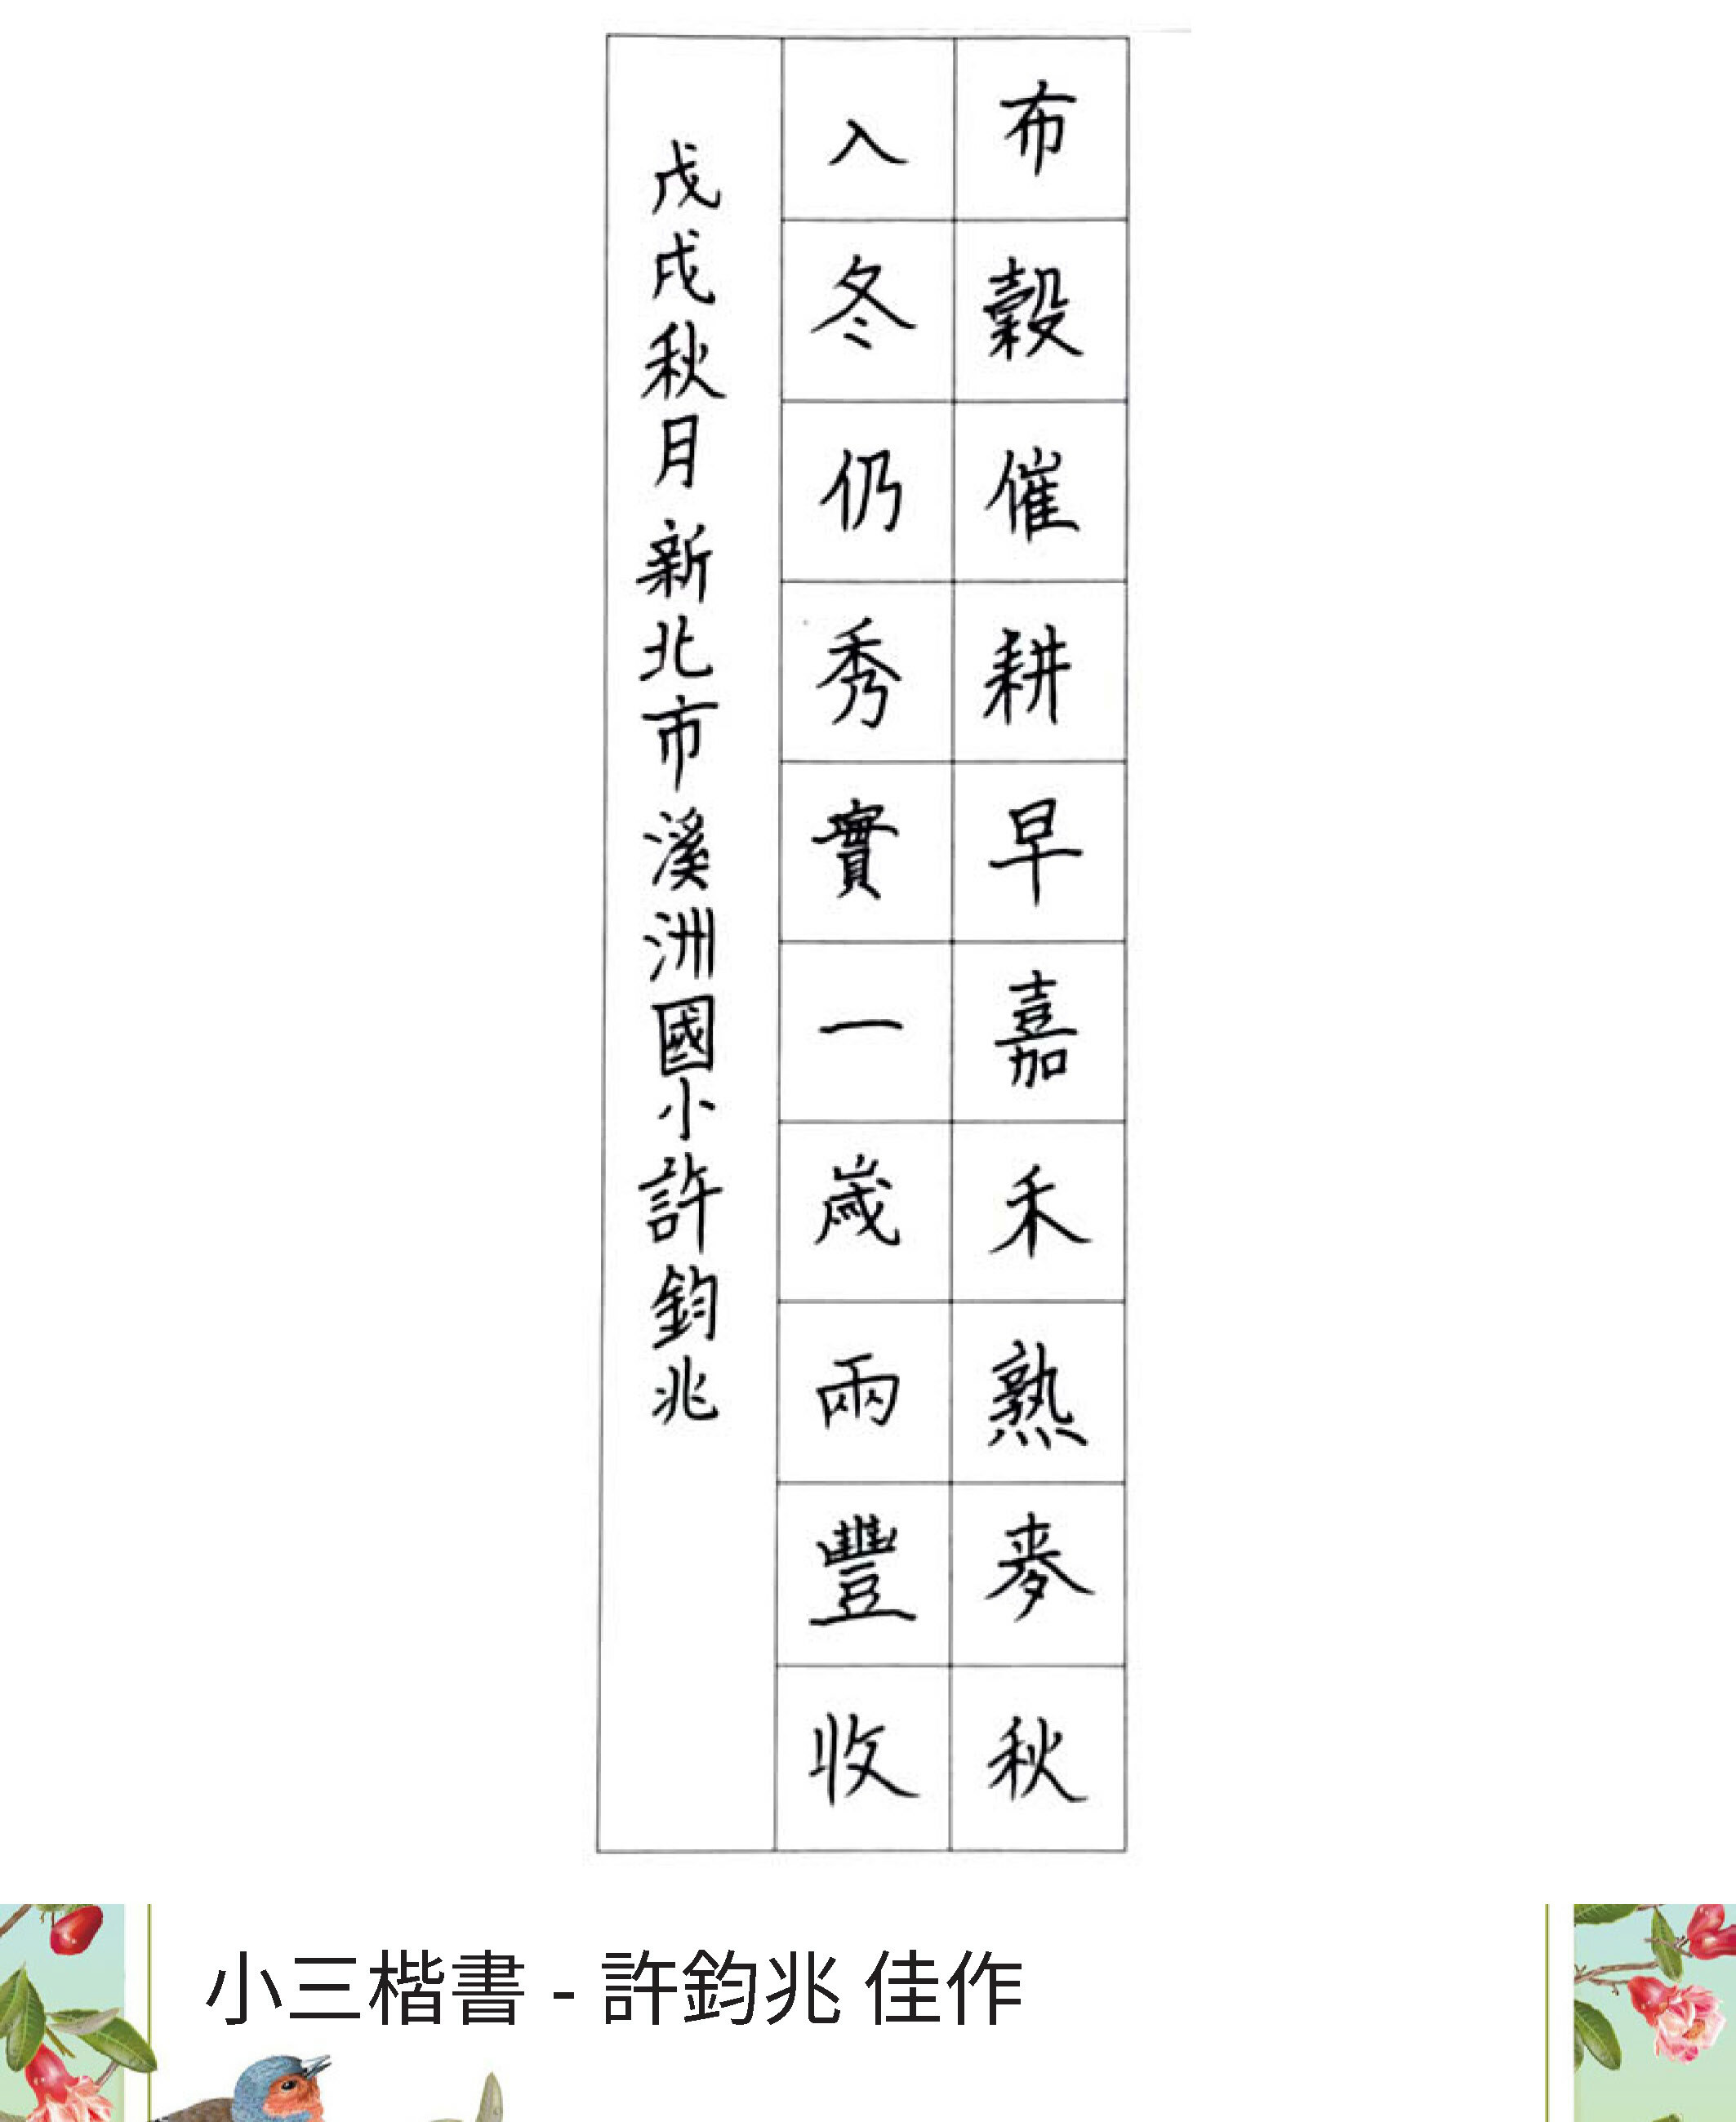 布穀催耕早嘉禾熟麥秋
入冬仍秀實一歲兩豐收
戊戌秋月新北市溪洲國小許鈞兆
小三楷書 - 許鈞兆 佳作